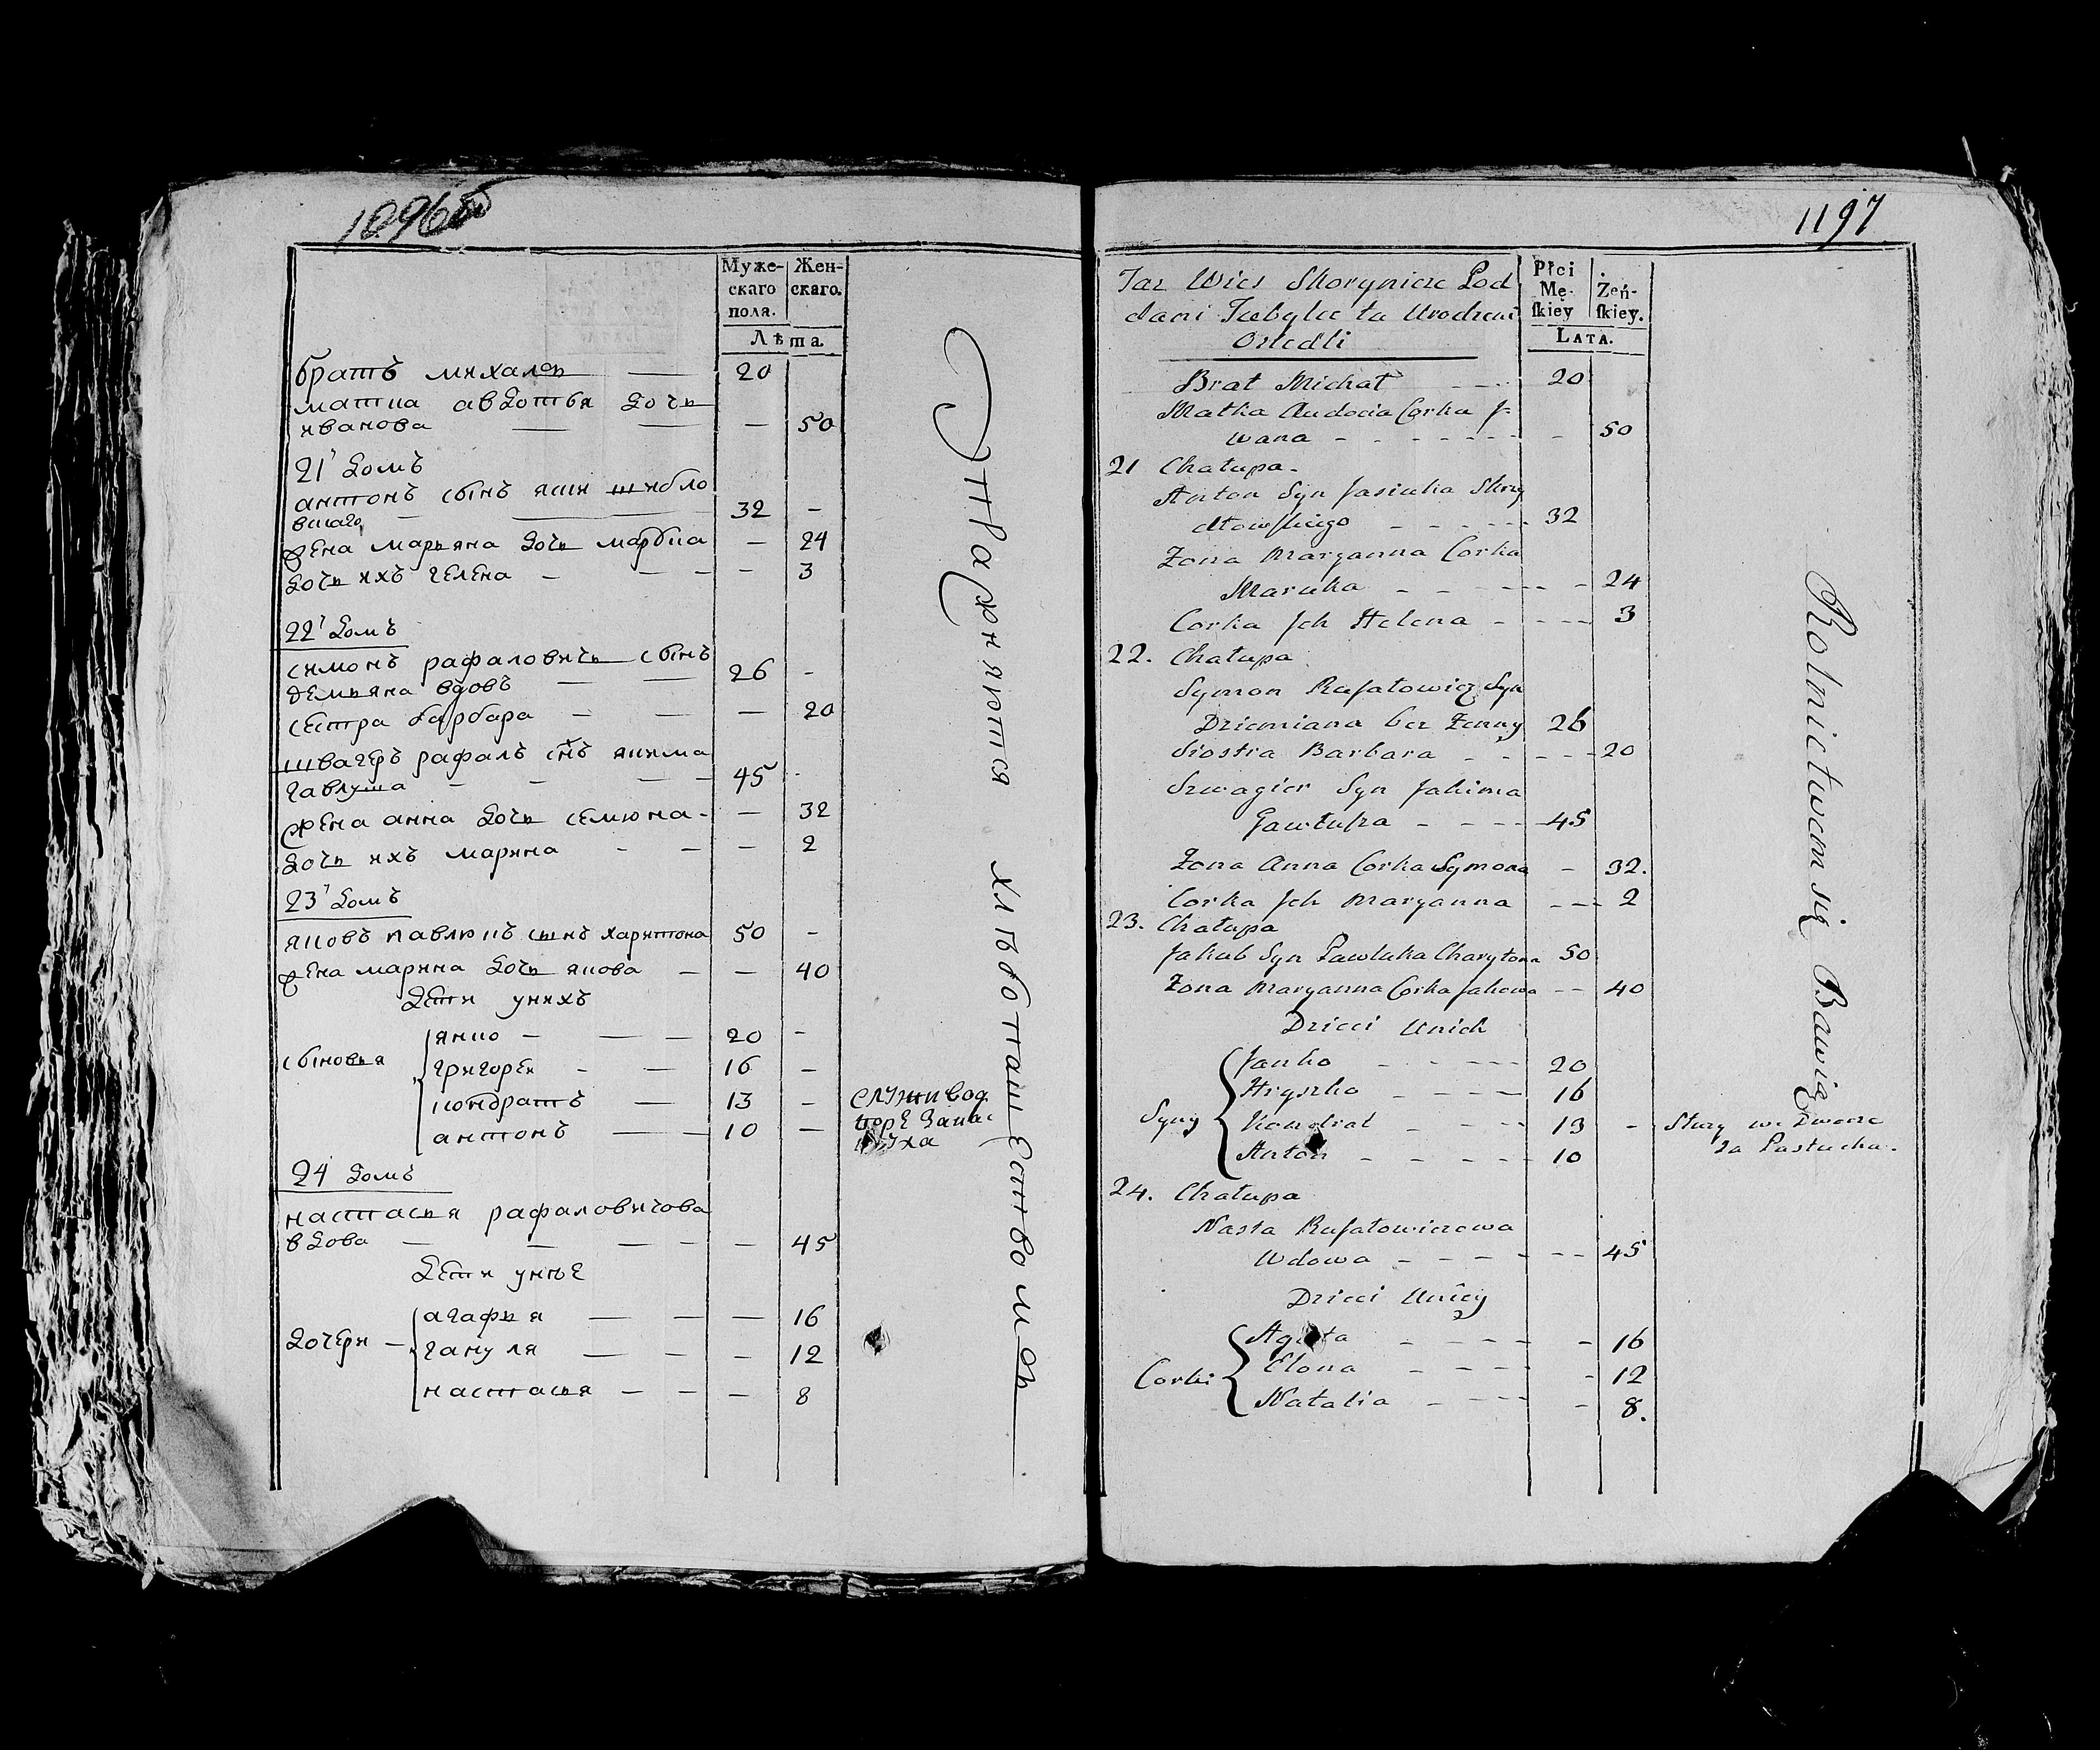 Муже-
скаго
пола.
Жен-
скаго.
Лѣта.
братъ михалъ — 20
матка авдотья дочь
иванова — — — 50
21 домъ
антонъ сынъ яски шидло
вскаго — — 32 -
жена марьяна дочь марѣка — 24
дочь ихъ гелена - — - - 3
22 домъ
симонъ рафаловичь сынъ
демьяна вдовъ — — 26 -
сестра барбара - — - — 20
швагеръ рафалъ снъ якима
гавлуша - - — - 45 -
жена анна дочь семюна - — 32
дочь ихъ марина - - — 2
23 домъ
яковъ павлюкъ сынъ харитона 50 -
жена марина дочь якова - — 40
дети унихъ
сыновья
янко - — - 20 -
григорей - — 16 -
кондратъ — 13 -
антонъ — 10 —
служи вод
воре запас
туха
24 домъ
настасья рафаловичова
вдова — - — - — 45
дети унъе
дочери —
агафья — — — 16
гануля — - - 12
настасья - - - 8
Упражняются хлѣбопашественомъ
1197
Taż Wieś Skorynicze Pod
dani Tubylce tu Urodzeni
Osiedli
Płci
Mę-
ſkiey
Żeń-
ſkiey.
LATA.
Brat Michał - - - 20
Matka Audocia Corka J-
wana - - - - - - - - 50
21 Chałupa.
Anton Syn Jasiuka Szy
dłowſkiego - - - - - 32
Żona Maryanna Corka
Maruka - - - - - - 24
Corka Jch Helena - - - - 3
22. Chałupa
Symon Rafałowicz Syn
Dziemiana bez Żenny 26
Siostra Barbara - - - - - 20
Szwagier Syn Jakima
Gawłuſza - - - - 45
Żona Anna Corka Symona - 32.
Corka Jch Maryanna - - - 2
23. Chałupa
Jakub Syn Pawluka Charytona 50
Żona Maryanna Corka Jakowa - - 40
Dzieci Unich
Syny
Janko - - - - - 20
Hryszko - - - - - 16
Kondrat - - - - 13 -
Anton - - - - - 10
Służy we Dworze
za Pastucha.
24. Chałupa
Nasta Rafałowiczowa
Wdowa - - - - - - 45
Dzieci Unicy
Corki
Agata - - - - - 16
Elona - - - - - 12
Natalia - - - - - 8.
Rolnictwem się Bawią